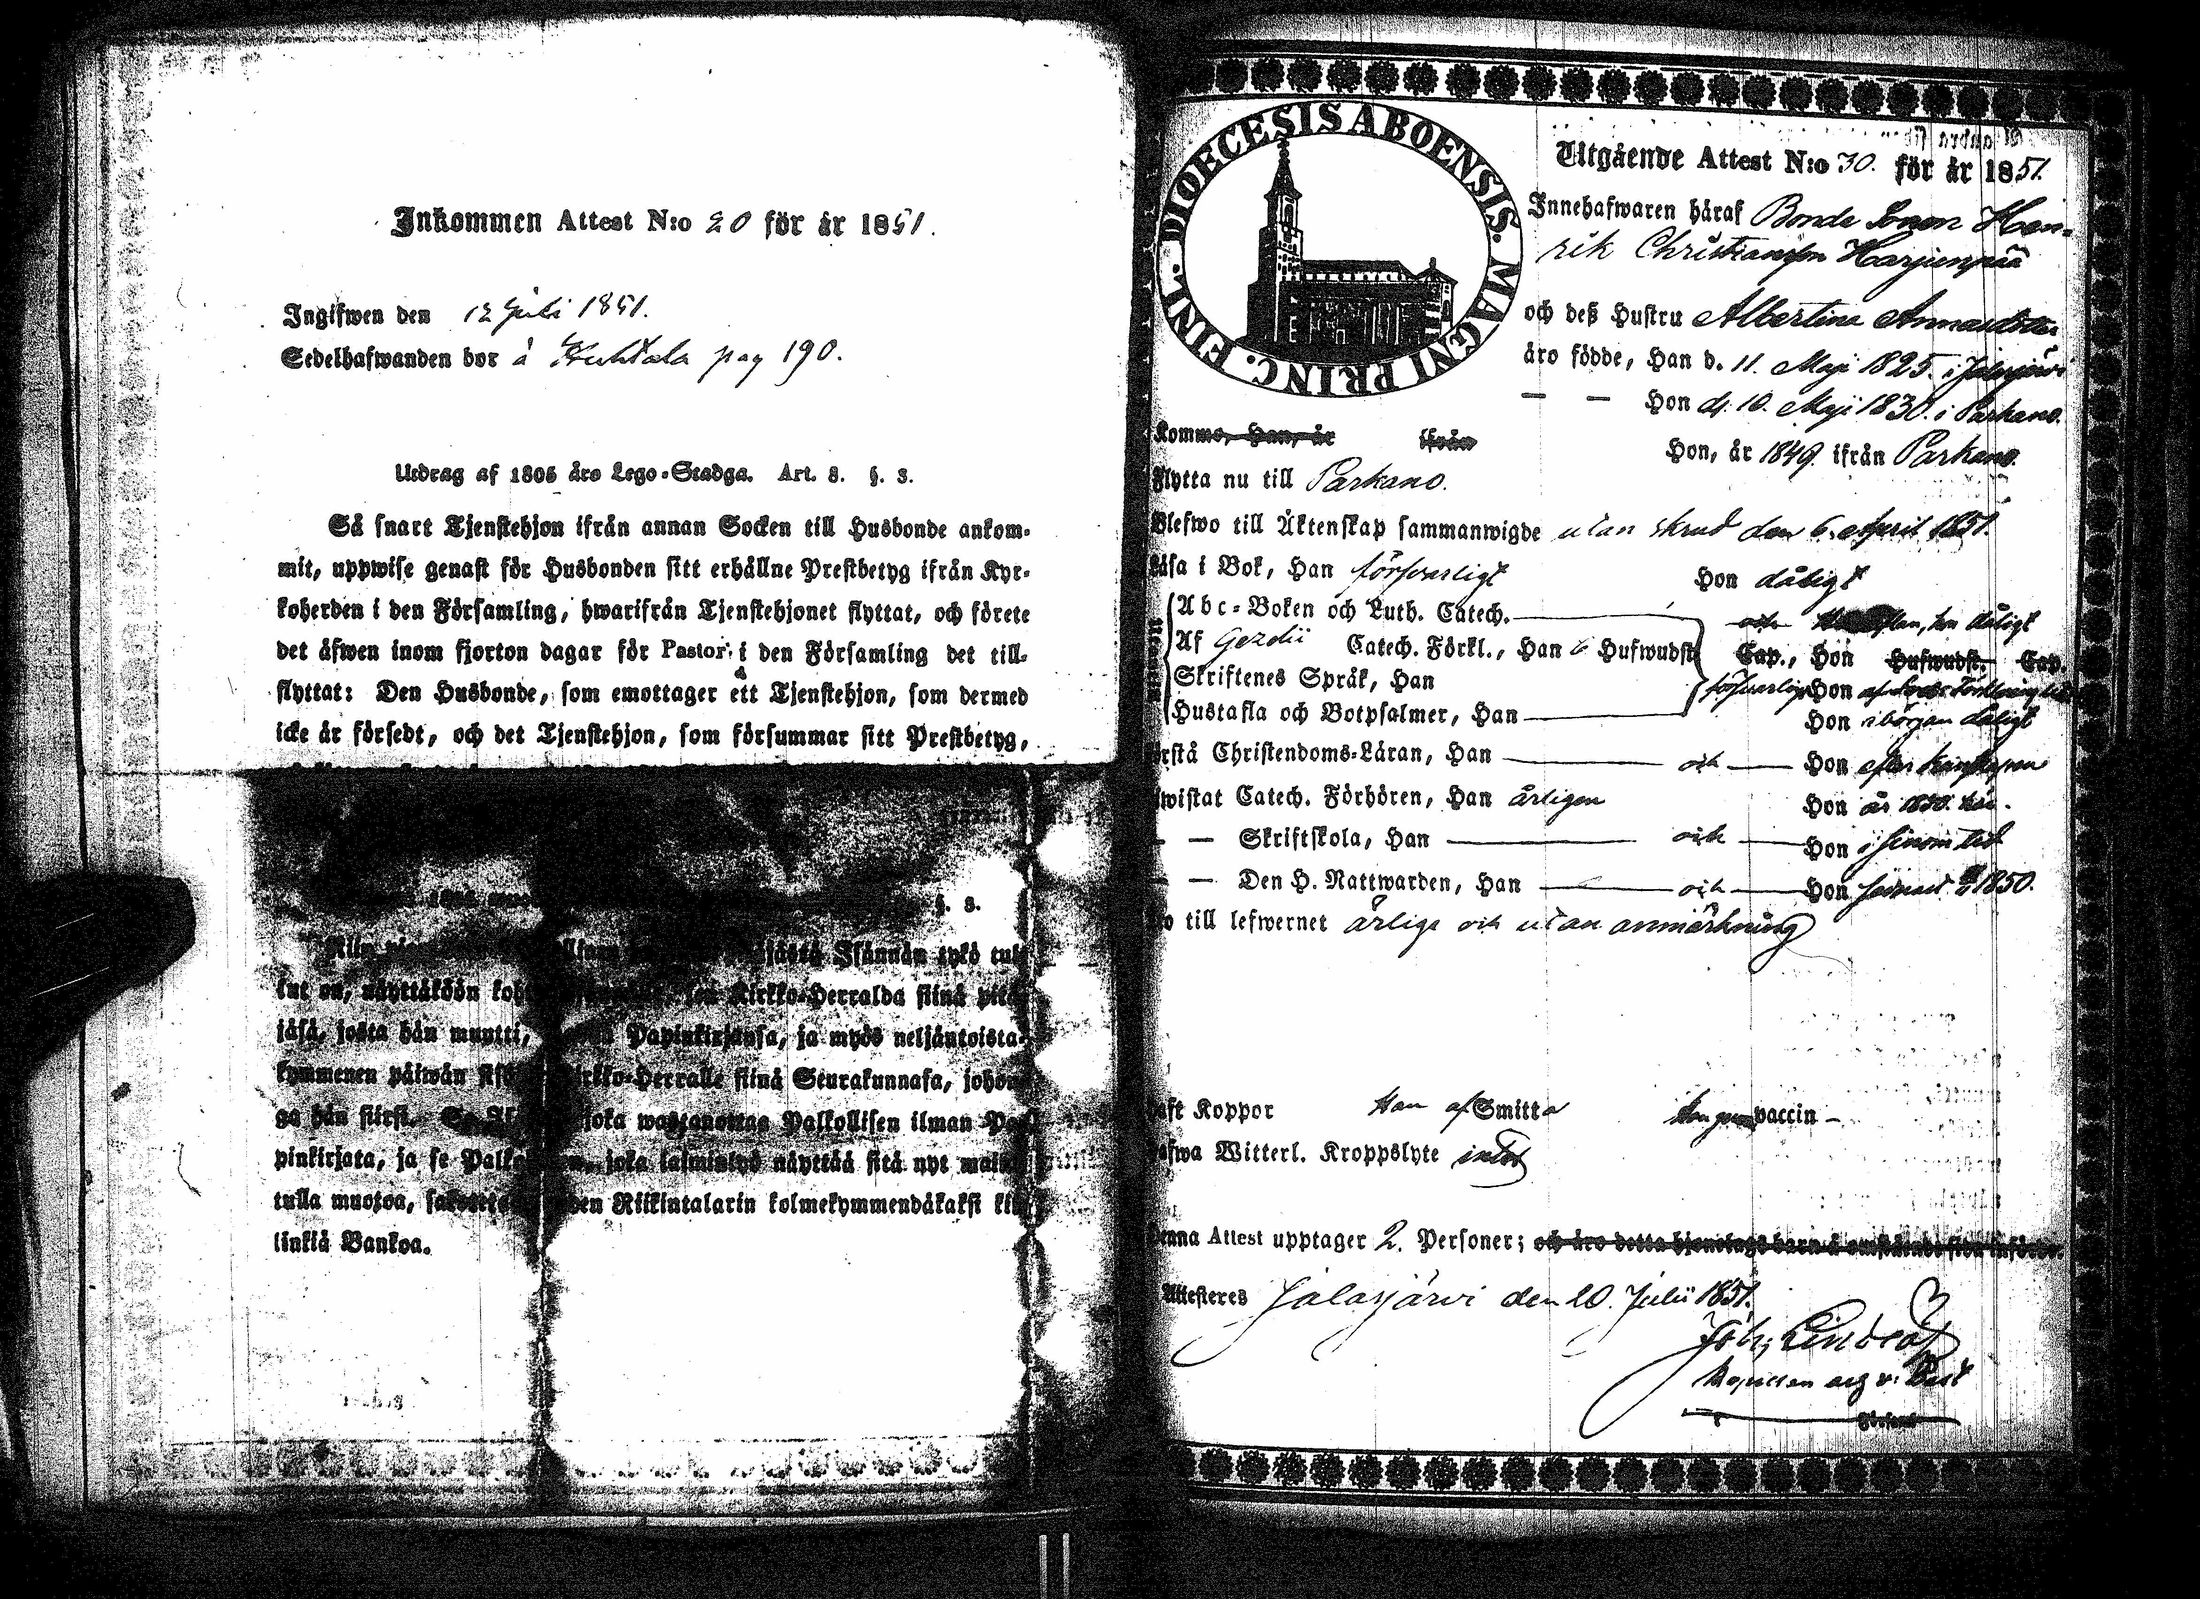 Inkommen Attest N:o 20 för år 1851.
Ingifwen den 12 Juli 1851.
Sedelhafwanden bor å Huhtala pag 190.
Utdrag af 1805 års Lego-Stadga. Art. 8. §. 3.
Så snart Tjenstehjon ifrån annan Socken till Husbonde ankom-
mit, uppwise genast för Husbonden sitt erhållne Prestbetyg ifrån Kyr-
koherden i den Församling, hwarifrån Tjenstehjonet flyttat, och förete
det äfwen inom fjorton dagar för Pastor i den Församling det till-
flyttat: Den Husbonde, som emottager ett Tjenstehjon, som dermed
icke är försedt, och det Tjenstehjon, som försummar sitt Prestbetyg,
§. 3.
Niin Isännän tykö tul-
lut on, näyttäköön Kirkko-Herralda siinä pitä-
jäsä, josta hän muutti, Papinkirjansa, ja myös neljäntoista-
kymmenen päiwän Kirkko-Herralle siinä Seurakunnasa, johon-
ga hän siirsi. joka wastanottaa Palkollisen ilman Pa-
pinkirjata, ja se joka laiminlyö näyttää sitä nyt mainit-
tulla muotoa, Riikintalarin kolmekymmendäkaksi kil-
linkiä Bankoa.
DIOECESIS ABOENSIS. MAGNI PRINC. FINL.
Utgående Attest N:o 30. för år 1851.
Innehafwaren häraf Bonde Sonen Hen-
rik Christiansson Harjunpää
och deß Hustru Albertina Annasdotter
äro födde, Han d. 11. Maji 1825. i Jalasjärvi
— — Hon d. 10. Maji 1830. i Parkano.
Komms, Han, år ifrån Hon, år 1849. ifrån Parkano.
Flytta nu till Parkano.
Blefwo till Äktenskap sammanwigde utan skrud den 6. April 1851.
Läsa i Bok, Han försvarligt Hon dåligt
Abc-Boken och Luth. Catech. och Han, hon dåligt
Af Gezelii Catech. Förkl., Han 6 Hufwudst. Cap., Hon Hufwudst. Cap.
Skriftenes Språk, Han försvarligt Hon
Hustafla och Botpsalmer, Han Hon i början dåligt
Förstå Christendoms-Läran, Han och Hon efter kunskapen
Bewistat Catech. Förhören, Han årligen Hon år 1850. här.
— — Skriftskola, Han och Hon i sinom tid
— — Den H. Nattwarden, Han och Hon senast 1850.
Äro till lefwernet ärliga och utan anmärkning
Haft Koppor Han af Smitta Hon genom vaccin —
Hafwa Witterl. Kroppslyte intet
Denna Attest upptager 2. Personer; och äro detta hjonelags barn å omstående sida införde.
Attesteras Jalasjärvi den 20. Julii 1851.